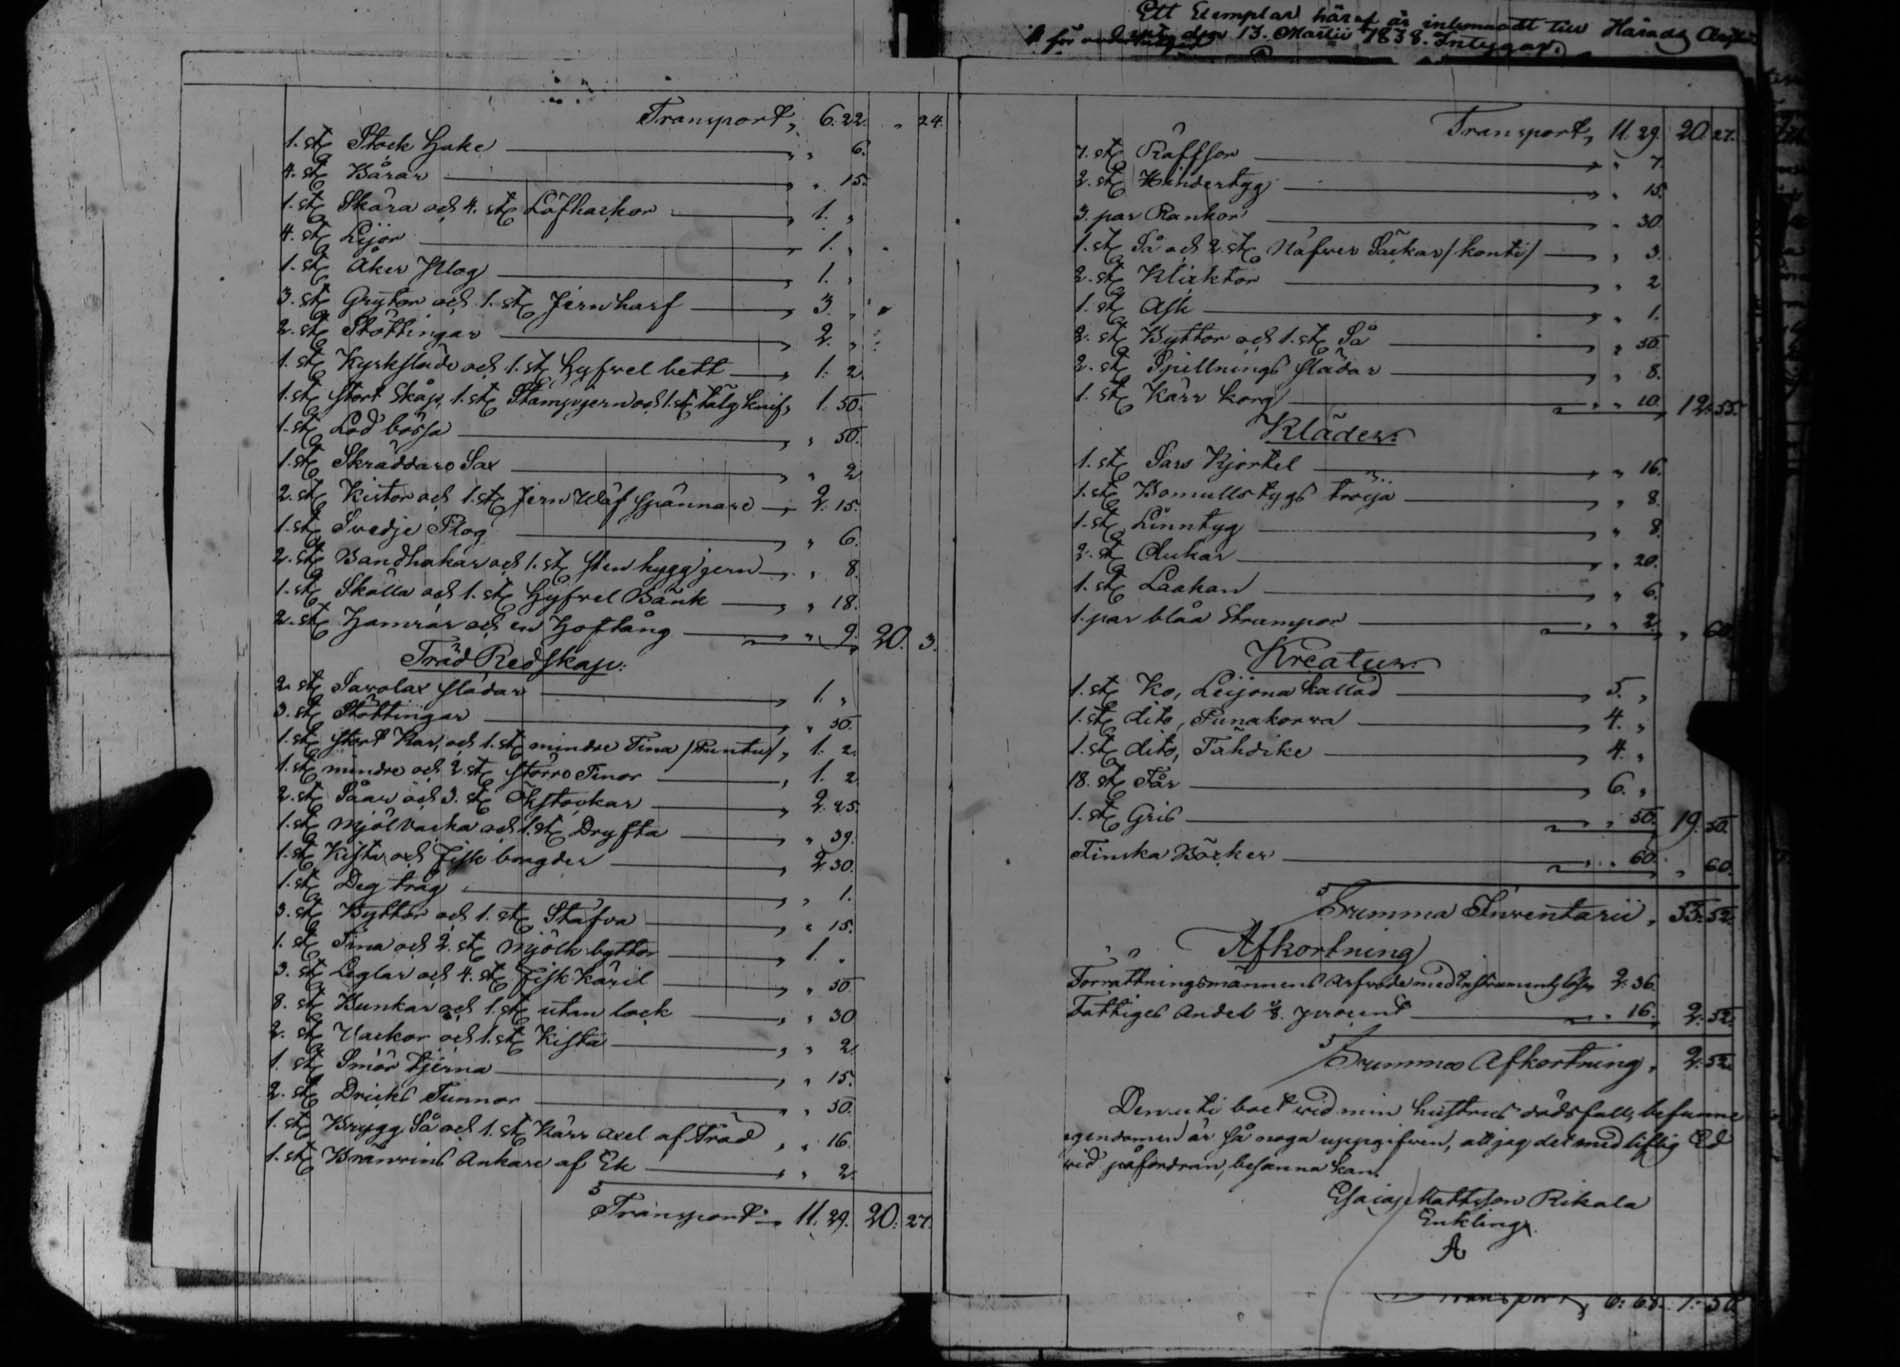 Transport, 6. 22. „ 24.
1. st. Stock Hake „ 6.
4. st. Bårar „ 15.
1. st. Skära och 4. st. Löfhackor 1. „
4. st. Lijor 1. „
1. st. Åker Plog 1. „
3. st. Grytor och 1. st. Jern harf 3. „
2. st. Stöttingar 2. „
1. st. Kyrksläde och 1. st. Hyfvel bett 1. 2.
1. st. stort Skåp, 1. st. Stämpjern och 1. st. tälg knif, 1. 50.
1. st. Lod bössa „ 50.
1. st. Skräddare Sax „ 2
2. st. Kistor och 1. st. Jern 2. 15.
1. st. Svedje Plog „ 6.
2. st. Bandhakar och 1. st. sten hygg jern „ 8.
1. st. Skålla och 1. st. Hyfvel Bänk „ 18.
2. st. Hamrar och en Hoftång „ 9. 20. 3.
Träd Redskap.
2. st. Savolax slädar 1. „
3. st. Stöttingar „ 50.
1. st. stort Kar, och 1. st. mindre Tina /Puntu/, 1. 2.
1. st. mindre och 2. st. större Tinor 1. 2
2. st. Såar och 3. st. 2. 25.
1. st. Mjölvacka och 1. st. Dryfta „ 39.
1. st. Kista och Fisk bragder 2. 30.
1. st. Deg tråg „ 1.
3. st. Byttor och 1. st. Stäfva „ 15.
1. st. Tina och 2. st. Mjölk byttor 1. „
3. st. Leglar och 4. st. Fisk Käril „ 50
8. st. Bunkar och 1. st. utan lock „ 30
2. st. Vackor och 1. st. Kista „ 2
1. st. Smör tjerna „ 15.
2. st. Dricks Tunnor „ 50.
1. st. Brygg Så och 1. st. Kärr axel af Träd „ 16.
1. st. Bränvins Ankare af Ek „ 2
Transport 11. 29. 20. 27.
Ett Exemplar häraf är inlemnadt till Härads
den 13. Martii 1838. Intygar.
Transport, 11. 29. 20. 27.
7. st. Räfssor „ 7.
2. st. „ 15.
3. par Rankor „ 30
1. st. Så och 2. st. Näfver Säckar /konti/ „ 3.
2. st. „ 2
1. st. Ask „ 1.
2. st. Byttor och 1. st. Så „ 50
2. st. Spillnings slädar „ 8.
1. st. Kärr korg „ 10. 12. 55.
Kläder.
1. st. Sars Kjortel „ 16.
1. st. Bomulls tygs tröja „ 8.
1. st. Linntyg „ 8.
2. st. Dukar „ 20.
1. st. Laakan „ 6.
1. par blåa Strumpor „ 2. „ 60.
Kreatur.
1. st. Ko, Leijona kallad 5. „
1. st. dito, Punakorva 4. „
1. st. dito, Tähdike 4. „
18. st. Får 6. „
1. st. Gris „ 50. 19. 50.
Finska Böcker „ 60. „ 60.
Summa Inventarii, 55. 52.
Afkortning
Förrättningsmännens Arfvode med 2. 36.
Fattiges Andel 1/8. procent „ 16. 2. 52.
Summa Afkortning, 2. 52.
Den uti boet vid min hustrus dödsfall, befunne
egendomen är så noga uppgifven, att jag det med liflig Ed
vid påfordran, besanna kan.
Esaias Mattsson Rikala
Enkling.
A
Transport, 6. 68. 1. 50